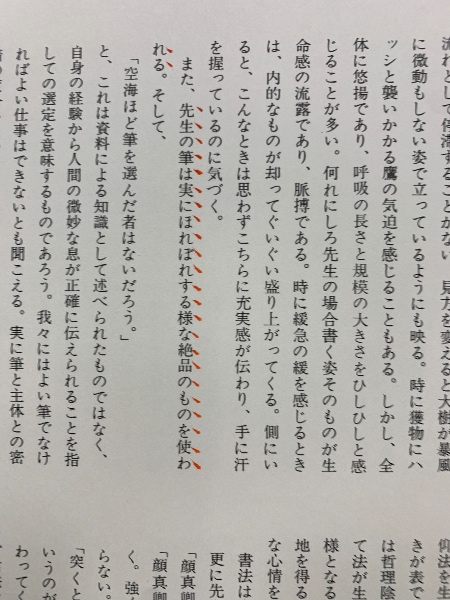 流れとして停滞することがない　見方を変えると大樹が暴風
に微動もしない姿で立っているようにも映る。時に獲物にハ
ッシと襲いかかる鷹の気迫を感じることもある。しかし、全
体に悠揚であり、呼吸の長さと規模の大きさをひしひしと感
じることが多い。何れにしろ先生の場合書く姿そのものが生
命感の流露であり、脈搏である。時に緩急の緩を感じるとき
は、内的なものが却ってぐいぐい盛り上がってくる。側にい
ると、こんなときは思わずこちらに充実感が伝わり、手に汗
を握っているのに気づく。
また、先生の筆は実にほれぼれする様な絶品のものを使わ
れる。そして、
「空海ほど筆を選んだ者はないだろう。」
と、これは資料による知識として述べられたものではなく、
自身の経験から人間の微妙な息が正確に伝えられることを指
しての選定を意味するものであろう。我々にはよい筆でなけ
ればよい仕事はできないとも聞こえる。実に筆と主体との密
仰法を生
きが表で
は哲理陰
て法が生
様となる
地を得る
な心情を
書法は
更に先
「顔真卿
「顔真卿
く。強く
らない。
「突くと
いうのが
わってく